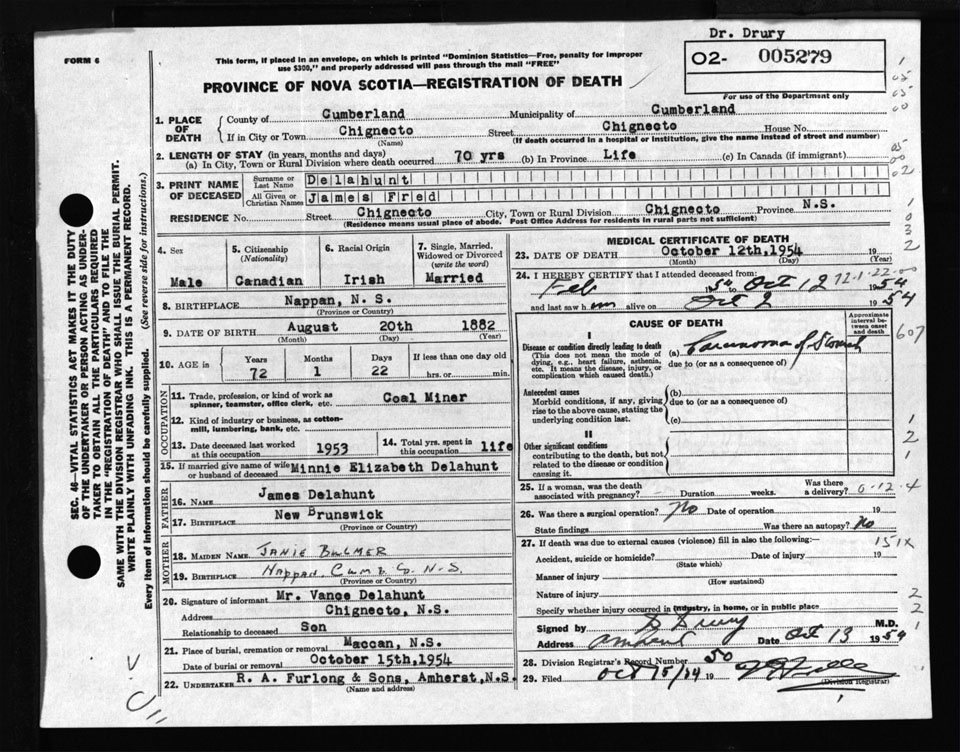 Dr. Drury
FORM 6
This form, if placed in an envelope, on which is printed "Dominion Statistics—Free, penalty for improper
use $300," and properly addressed will pass through the mail "FREE"
O2- 005279
For use of the Department only
PROVINCE OF NOVA SCOTIA—REGISTRATION OF DEATH
1. PLACE OF DEATH
County of Cumberland Municipality of Cumberland
If in City or Town Chignecto Street Chignecto House No.
(Name) (If death occurred in a hospital or institution, give the name instead of street and number)
2. LENGTH OF STAY (in years, months and days)
(a) In City, Town or Rural Division where death occurred 70 yrs (b) In Province Life (c) In Canada (if immigrant)
3. PRINT NAME OF DECEASED
Surname or Last Name Delahunt
All Given or Christian Names James Fred
RESIDENCE No. Street Chignecto City, Town or Rural Division Chignecto Province N.S.
(Residence means usual place of abode. Post Office Address for residents in rural parts not sufficient)
4. Sex Male
5. Citizenship (Nationality) Canadian
6. Racial Origin Irish
7. Single, Married, Widowed or Divorced (write the word) Married
8. BIRTHPLACE Nappan, N. S.
(Province or Country)
9. DATE OF BIRTH August 20th 1882
(Month) (Day) (Year)
10. AGE in Years Months Days If less than one day old
72 1 22 hrs. or min.
OCCUPATION
11. Trade, profession, or kind of work as spinner, teamster, office clerk, etc. Coal Miner
12. Kind of industry or business, as cotton-mill, lumbering, bank, etc.
13. Date deceased last worked at this occupation 1953
14. Total yrs. spent in this occupation life
15. If married give name of wife or husband of deceased Minnie Elizabeth Delahunt
FATHER
16. NAME James Delahunt
17. BIRTHPLACE New Brunswick
(Province or Country)
MOTHER
18. MAIDEN NAME JANIE BULMER
19. BIRTHPLACE Nappan, Cumb Co N.S.
(Province or Country)
20. Signature of informant Mr. Vance Delahunt
Address Chignecto, N.S.
Relationship to deceased Son
21. Place of burial, cremation or removal Maccan, N.S.
Date of burial or removal October 15th, 1954
22. UNDERTAKER R. A. Furlong & Sons, Amherst, N.S.
(Name and address)
MEDICAL CERTIFICATE OF DEATH
23. DATE OF DEATH October 12th, 1954 19
(Month) (Day) (Year)
24. I HEREBY CERTIFY that I attended deceased from:
Feb 1954 to Oct 12 1954
72-1-22-00
and last saw him alive on Oct 2 1954
CAUSE OF DEATH
Approximate interval between onset and death
I
Disease or condition directly leading to death
(This does not mean the mode of dying, e.g., heart failure, asthenia, etc. It means the disease, injury, or complication which caused death.)
(a) Carcinoma of Stomach
due to (or as a consequence of)
607
Antecedent causes
Morbid conditions, if any, giving rise to the above cause, stating the underlying condition last.
(b)
due to (or as a consequence of)
(c)
II
Other significant conditions
contributing to the death, but not related to the disease or condition causing it.
25. If a woman, was the death associated with pregnancy? Duration weeks. Was there a delivery? 0-12-4
26. Was there a surgical operation? No Date of operation 19
State findings Was there an autopsy? No
27. If death was due to external causes (violence) fill in also the following:— 151X
Accident, suicide or homicide? Date of injury 19
(State which)
Manner of injury
(How sustained)
Nature of injury
Specify whether injury occurred in industry, in home, or in public place
Signed by D Drury M.D.
Address Amherst Date Oct 13 1954
28. Division Registrar's Record Number 50
29. Filed Oct 15/54 19
(Division Registrar)
SEC. 46—VITAL STATISTICS ACT MAKES IT THE DUTY
OF THE UNDERTAKER OR PERSON ACTING AS UNDER-
TAKER TO OBTAIN ALL THE PARTICULARS REQUIRED
IN THE "REGISTRATION OF DEATH" AND TO FILE THE
SAME WITH THE DIVISION REGISTRAR WHO SHALL ISSUE THE BURIAL PERMIT.
WRITE PLAINLY WITH UNFADING INK. THIS IS A PERMANENT RECORD.
Every item of information should be carefully supplied. (See reverse side for instructions.)